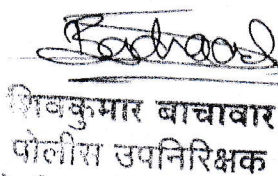 शिवकुमार बाचावार
पोलीस उपनिरिक्षक